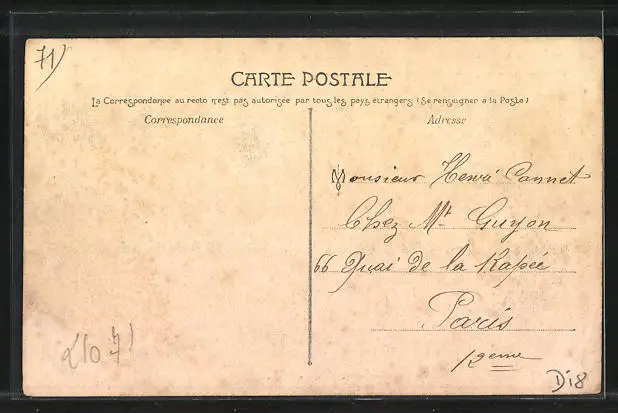 71)
CARTE POSTALE
La Correspondance au recto n'est pas autorisée par tous les pays étrangers (Se renseigner à la Poste)
Correspondance
Adresse
Monsieur Henri Cannet
Chez Mr Guyon
66 Quai de la Rapée
Paris
12eme
Di8